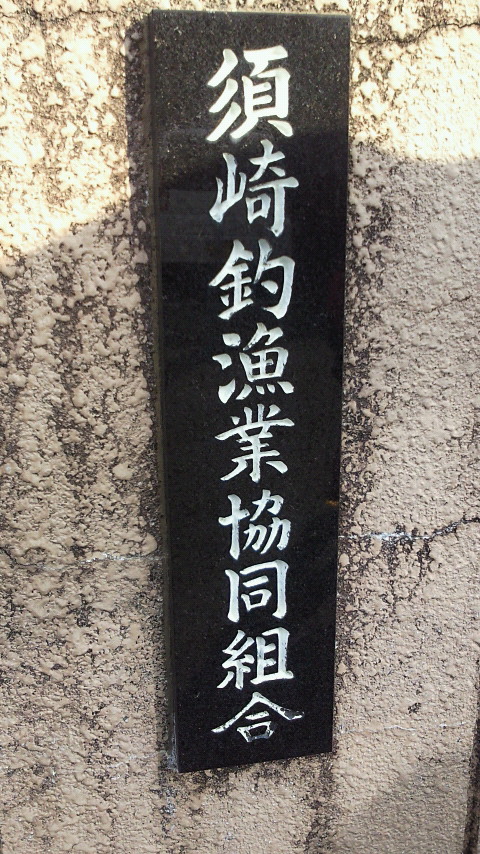 須崎釣漁業協同組合